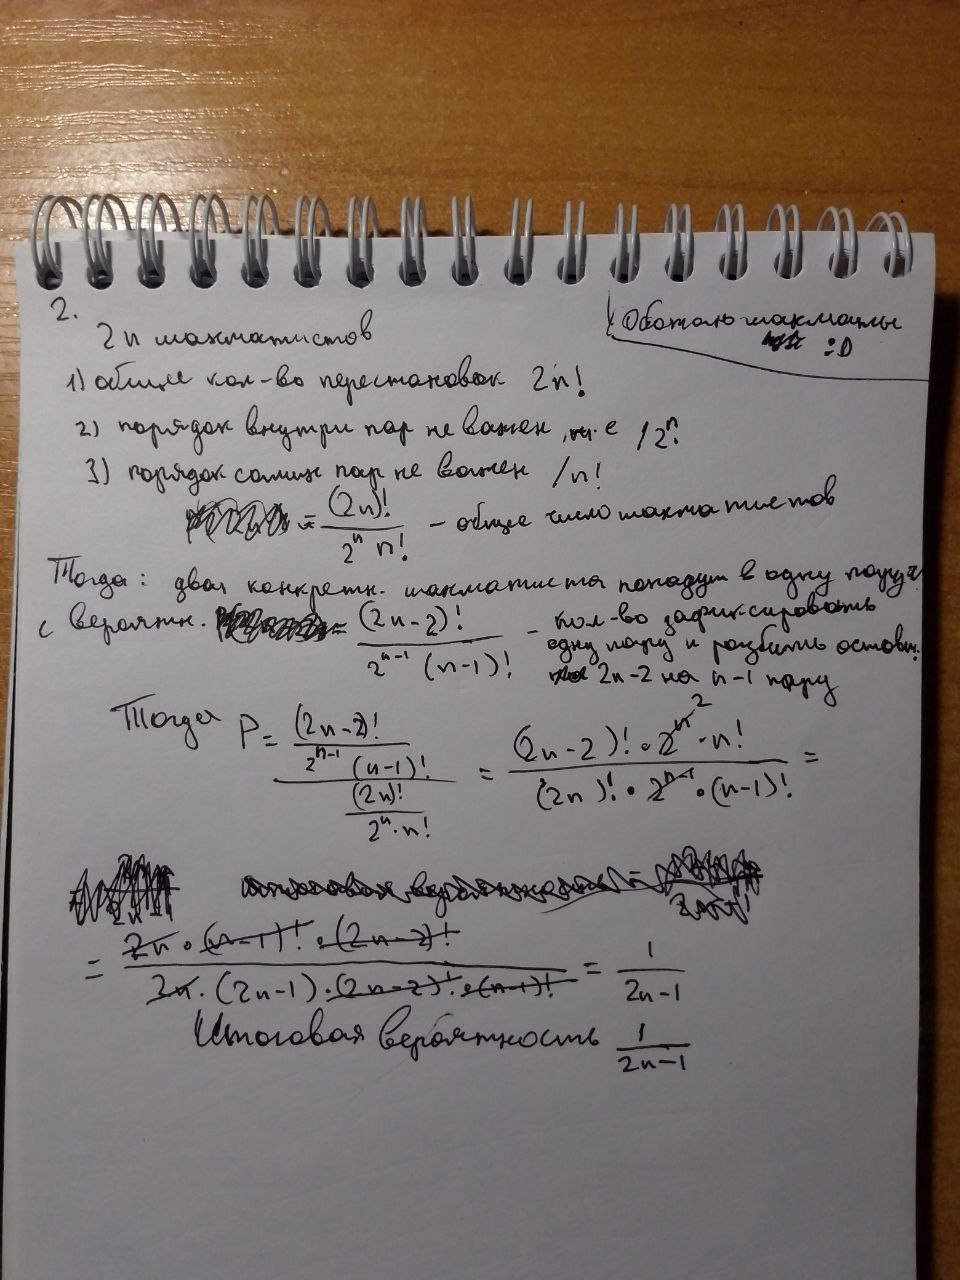 2.
2n шахматистов
Обожаю шахматы
:D
1) общее кол-во перестановок 2n!
2) порядок внутри пар не важен, т.е /2ⁿ!
3) порядок самих пар не важен /n!
= (2n)! / 2ⁿ n! - общее число шахматистов
Тогда: два конкретн. шахматиста попадут в одну пару
с вероятн. = (2n-2)! / 2ⁿ⁻¹ (n-1)! - кол-во зафиксировать
одну пару и разбить оставш.
2n-2 на n-1 пару
Тогда P = ((2n-2)! / 2ⁿ⁻¹ (n-1)!) / ((2n)! / 2ⁿ·n!) = (2n-2)!·2ⁿ ² ·n! / (2n)!·2ⁿ⁻¹·(n-1)! =
= 2n·(n-1)!·(2n-2)! / 2n·(2n-1)·(2n-2)!·(n-1)! = 1 / 2n-1
Итоговая вероятность 1 / 2n-1